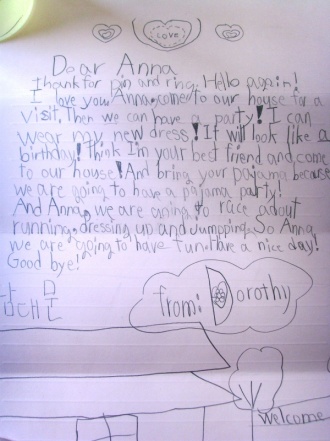 LOVE
Dear Anna
thank for pin and ring. Hello again!
I love you Anna. come to our house for a
visit. Then we can have a party! I can
wear my new dress! It will look like a
birthday! Think I'm your best friend and come
to our house! And bring your pajama because
we are going to have a pajama party!
And Anna, we are going to race about
running, dressing up and jumpping. So Anna
we are going to have fun. Have a nice day!
Good bye!
from: Dorothy
Welcome